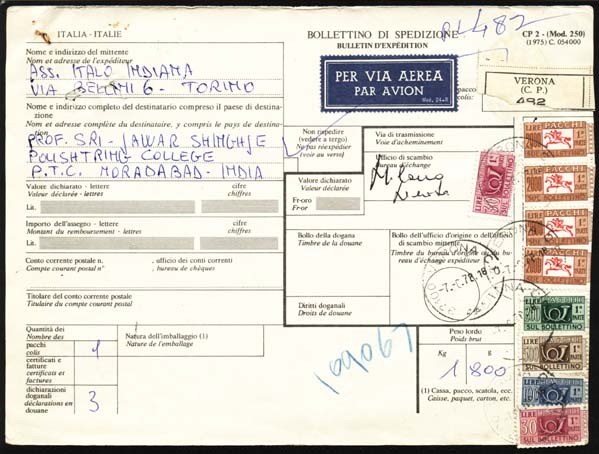 ITALIA - ITALIE
BOLLETTINO DI SPEDIZIONE
BULLETIN D'EXPÉDITION
CP 2 - (Mod. 250)
(1975) C. 054000
Nome e indirizzo del mittente
Nom et adresse de l'expéditeur
ASS. ITALO INDIANA
VIA BELLINI 6 - TORINO
PER VIA AEREA
PAR AVION
Mod. 24-B
pacchi
colis:
VERONA
(C. P.)
492
Nome e indirizzo completo del destinatario compreso il paese di destinazione
Nom et adresse complète du destinataire, y compris le pays de destination
PROF. SRI - JAWAR SHINGHJE
POLISHTRING COLLEGE
P.T.C. MORADABAD - INDIA
Non rispedire
(vedere a tergo)
Ne pas réexpédier
(voir au verso)
Via di trasmissione
Voie d'acheminement
Ufficio di scambio
Bureau d'échange
Valore dichiarato - lettere
Valeur déclarée - lettres
cifre
chiffres
Lit.
Valore dichiarato
Valeur déclarée
Fr-oro
Fr-or
Importo dell'assegno - lettere
Montant du remboursement - lettres
cifre
chiffres
Lit.
Bollo della dogana
Timbre de la douane
Bollo dell'ufficio d'origine o dell'ufficio di scambio mittente
Timbre du bureau d'origine ou du bureau d'échange expéditeur
Conto corrente postale n.
Compte courant postal n°
, ufficio dei conti correnti
, bureau de chèques
Titolare del conto corrente postale
Titulaire du compte courant postal
Diritti doganali
Droits de douane
Quantità dei
Nombre des
pacchi
colis
1
certificati e fatture
certificats et factures
dichiarazioni doganali
déclarations en douane
3
Natura dell'imballaggio (1)
Nature de l'emballage
109067
Peso lordo
Poids brut
Kg
g
1 800
(1) Cassa, pacco, scatola, ecc.
Caisse, paquet, carton, etc.
LIRE PACCHI
2000 1ª PARTE
SUL BOLLETTINO
LIRE PACCHI
2000 1ª PARTE
SUL BOLLETTINO
LIRE PACCHI
2000 1ª PARTE
SUL BOLLETTINO
LIRE PACCHI
2000 1ª PARTE
SUL BOLLETTINO
SUL BOLLETTINO
300
SUL BOLLETTINO
SUL BOLLETTINO
30
SUL BOLLETTINO